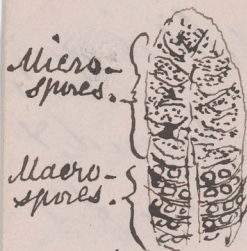 Micro-
spores.
Macro-
spores.